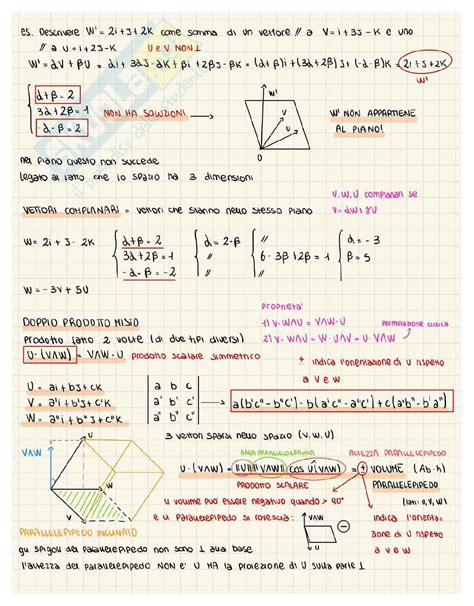 es. Descrivere W' = 2i+J+2K come somma di un vettore // a V = i+3J-K e uno
// a U = i+2J-K U e V NON ⊥
W' = αV + βU = αi + 3αJ - αK + βi + 2βJ - βK = (α+β)i + (3α+2β)J + (-α-β)K = 2i+J+2K
W'
α+β = 2
3α+2β = 1
-α-β = 2
NON HA SOLUZIONI
W'
V
U
O
W' NON APPARTIENE
AL PIANO!
nel piano questo non succede
legato al fatto che lo spazio ha 3 dimensioni
VETTORI COMPLANARI = vettori che stanno nello stesso piano
V, W, U complanari se
V = αW + γU
W = 2i + J - 2K
α+β = 2
3α+2β = 1
-α-β = -2
α = 2-β
//
//
//
6-3β+2β = 1
//
α = -3
β = 5
W = -3V + 5U
DOPPIO PRODOTTO MISTO
Prodotto fatto 2 volte (di due tipi diversi)
U·(V∧W) = V∧W·U prodotto scalare simmetrico
Proprieta'
1) V·W∧U = V∧W·U
2) V·W∧U = W·U∧V = U·V∧W
permutazione ciclica
± indica l'orientazione di U rispetto
a V e W
U = ai+bJ+cK
V = a'i+b'J+c'K
W = a''i+b''J+c''K
a b c
a' b' c'
a'' b'' c''
a(b'c''-b''c') - b(a'c''-a''c') + c(a'b''-b'a'')
3 vettori sparsi nello spazio (V, W, U)
V∧W
U
W
V
PARALLELEPIPEDO INCLINATO
AREA PARALLELOGRAMMA
ALTEZZA PARALLELEPIPEDO
U·(V∧W) = ||U|| ||V∧W|| cos U^(V∧W) = ± VOLUME (Ab·h)
PRODOTTO SCALARE
PARALLELEPIPEDO
(lati: U, V, W)
il volume può essere negativo quando > 90°
e il parallelepipedo si rovescia:
V∧W
U
indica l'orienta=
zione di U rispetto
a V e W
gli spigoli del parallelepipedo non sono ⊥ alla base
l'altezza del parallelepipedo NON E' U MA la proiezione di U sulla parte ⊥